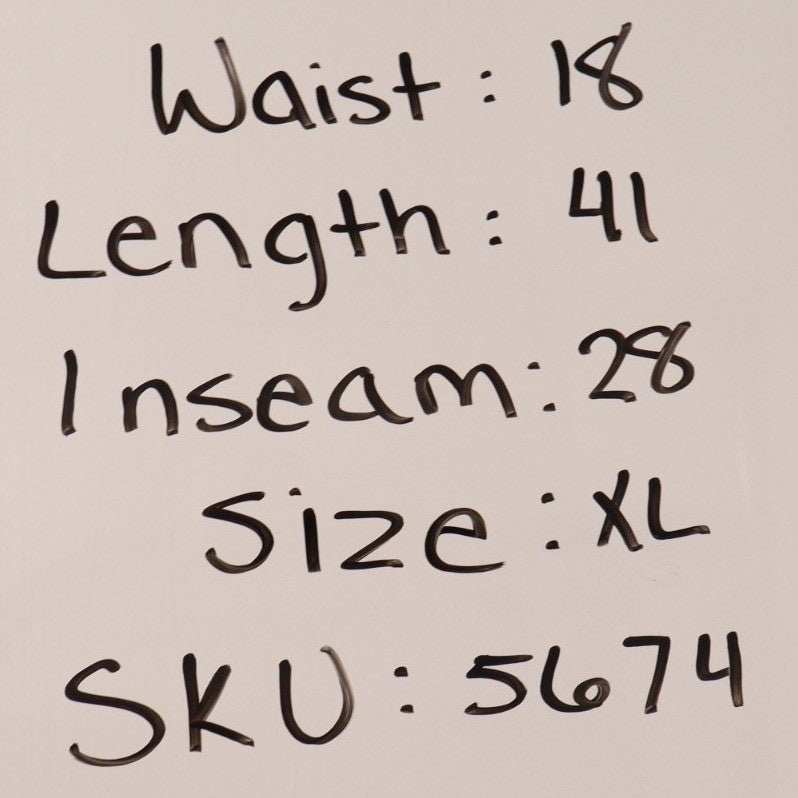 Waist: 18
Length: 41
Inseam: 28
Size: XL
SKU: 5674